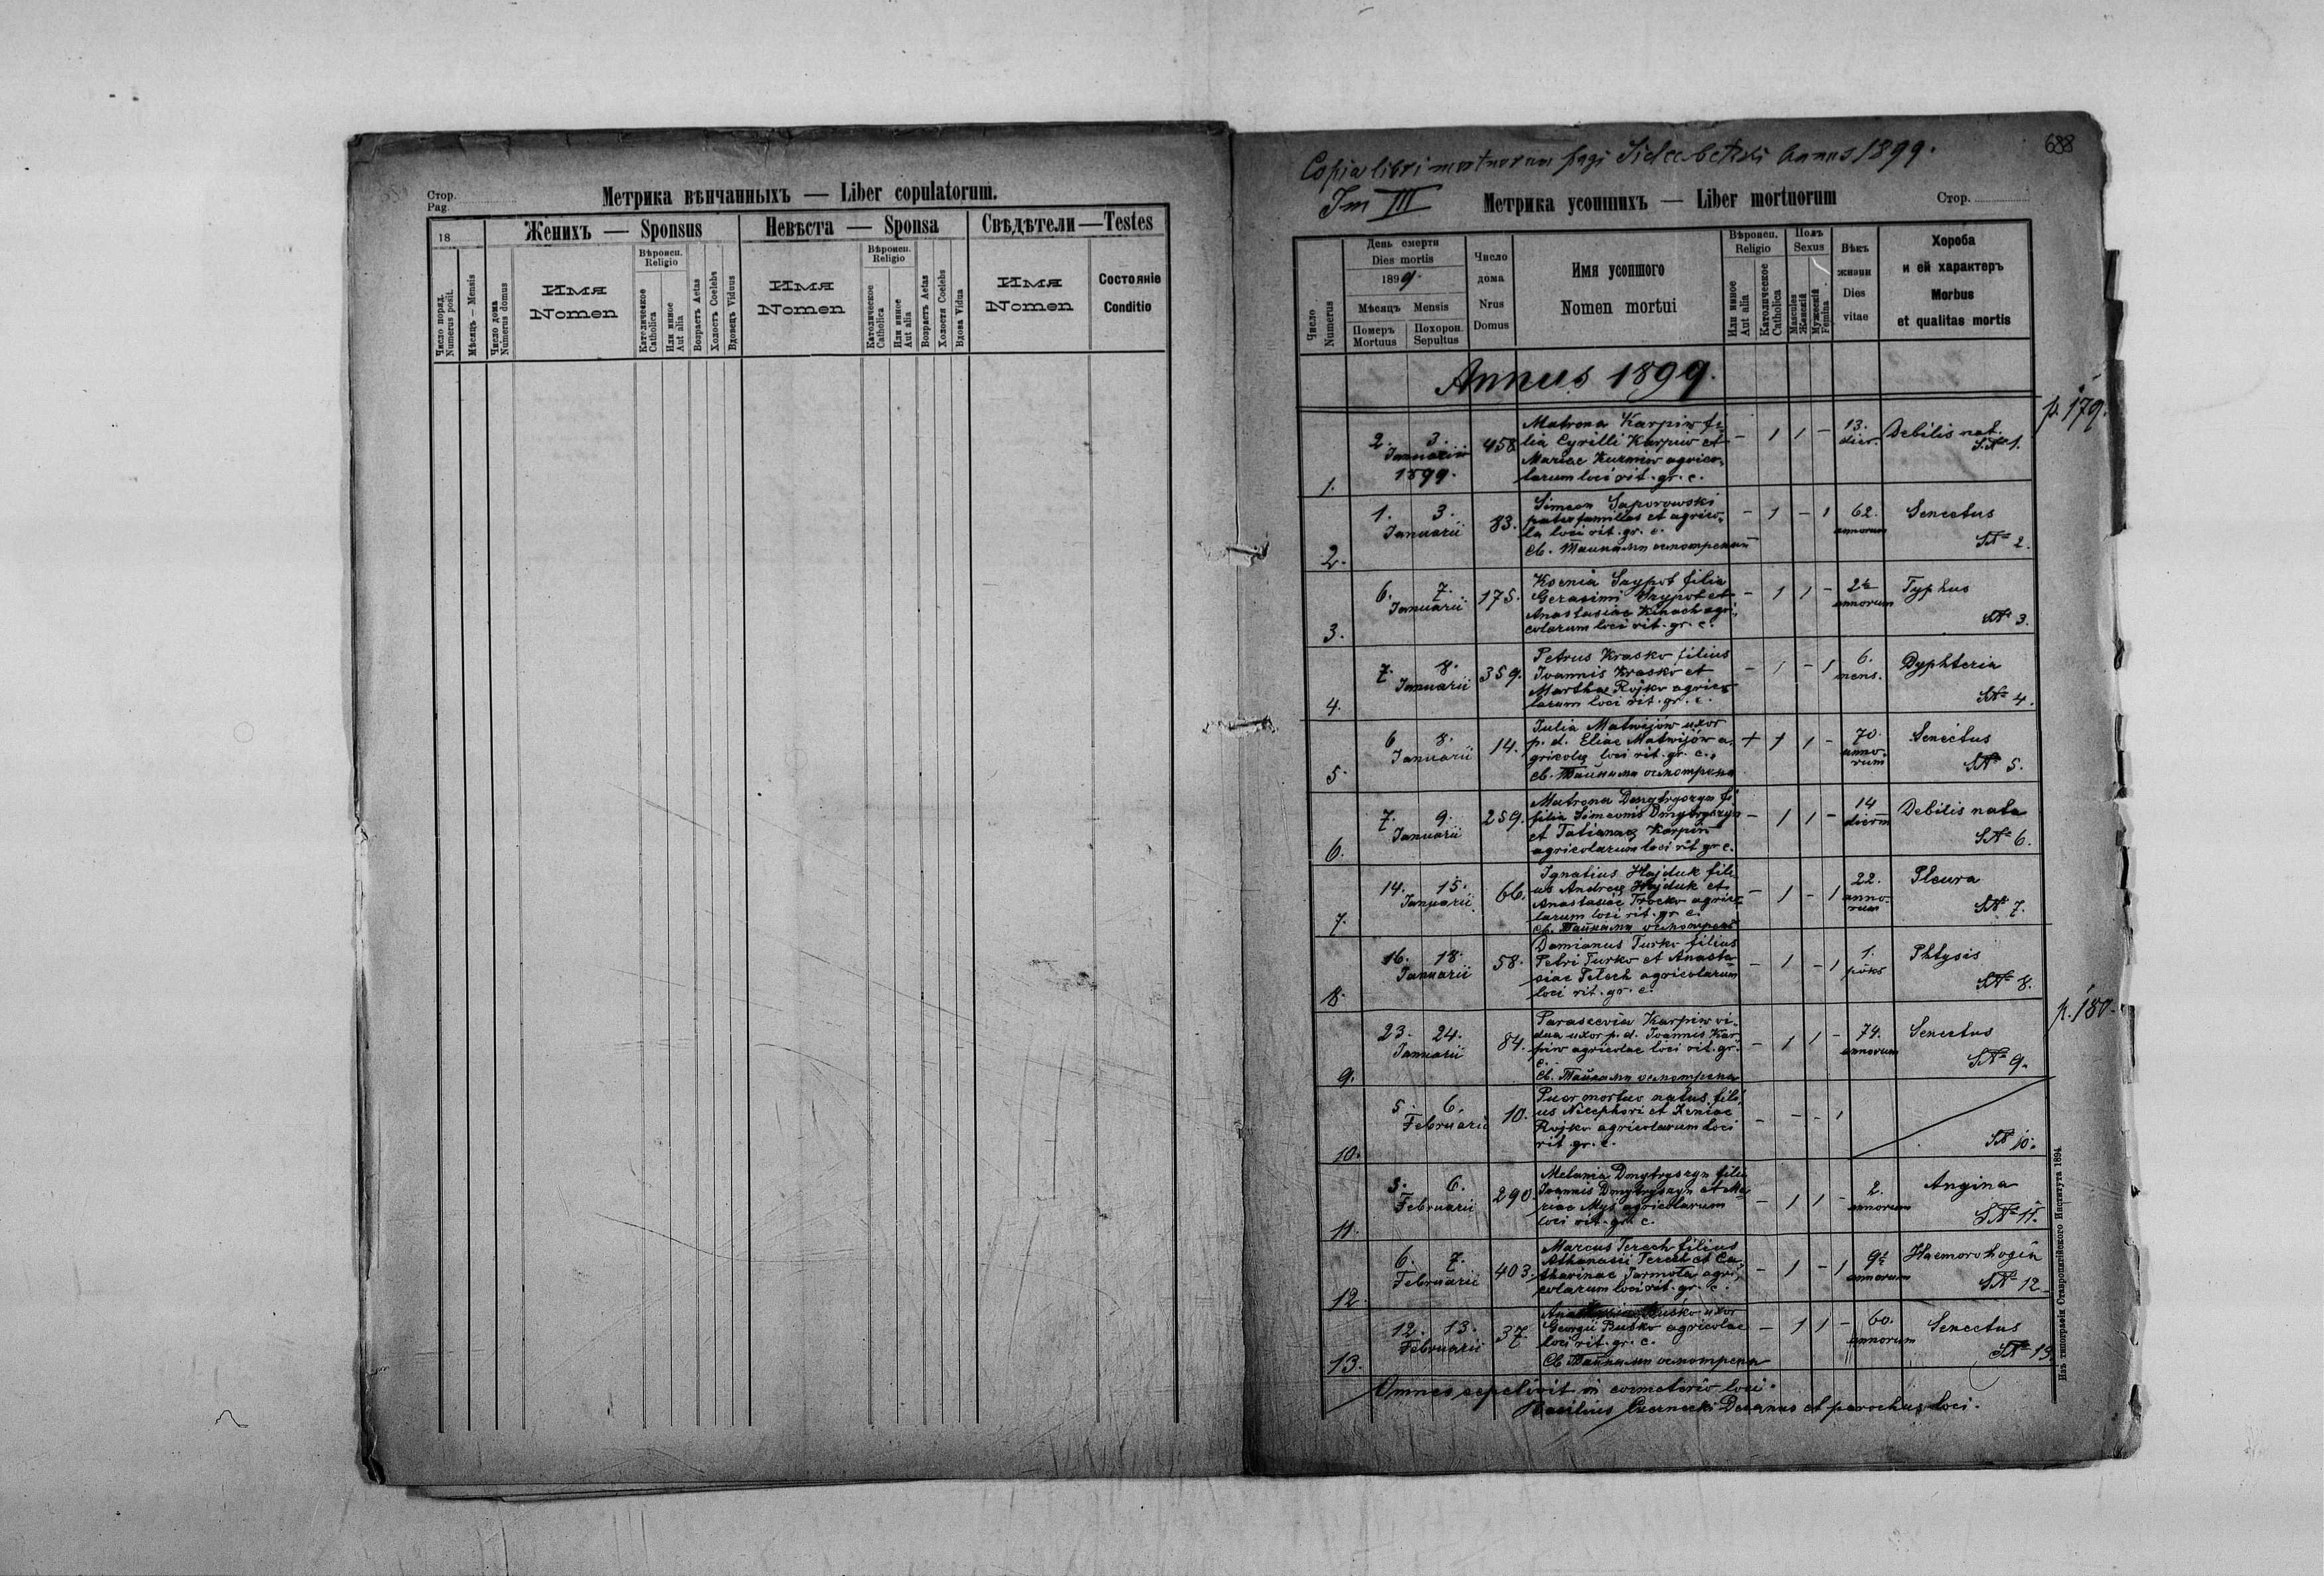 Стор.
Pag.
Метрика вѣнчанныхъ — Liber copulatorum.
18
Женихъ — Sponsus
Невѣста — Sponsa
Свѣдѣтели — Testes
Число поряд.
Numerus posit.
Мѣсяць — Mensis
Число дома
Numerus domus
Имя
Nomen
Вѣроисп.
Religio
Католическое
Catholica
Или инное
Aut alia
Возрастъ Aetas
Холостъ Coelebs
Вдовецъ Viduus
Имя
Nomen
Вѣроисп.
Religio
Католическое
Catholica
Или инное
Aut alia
Возрастъ Aetas
Холостя Coelebs
Вдова Vidua
Имя
Nomen
Состояніе
Conditio
688
Copia libri mortuorum pagi Annus 1899.
Tm III
Метрика усопшихъ — Liber mortuorum
Стор.
Число
Numerus
День смерти
Dies mortis
1899.
Мѣсяцъ Mensis
Померъ
Mortuus
Похорон.
Sepultus
Число
дома
Nrus
Domus
Имя усопшого
Nomen mortui
Вѣроисп.
Religio
Или инное
Aut alia
Католическое
Catholica
Полъ
Sexus
Mascules
Женскій
Мужескій
Femina
Вѣкъ
жизни
Dies
vitae
Хороба
и ей характеръ
Morbus
et qualitas mortis
Annus 1899.
p. 179.
1. 2. 3. Januarii 1899. 458
Matrona Karpiw fi-
lia Cyrilli Karpiw et
Mariae Kuzmiw agrico-
larum loci rit. gr. c.
- 1 1 - 13. dier. Debilis nat.
№ 1.
2. 1. 3. Januarii 83.
Simeon Saporowski
pater familias et agrico-
la loci rit. gr. c.
св. Тайнами осмотреный
- 1 - 1 62. annorum Senectus
№ 2.
3. 6. 7. Januarii 175.
Ksenia Szypot filia
Gerasimi Szypot et
Anastasiae Kinach agri-
colarum loci rit. gr. c.
- 1 1 - 2½ annorum Typhus
№ 3.
4. 7. 8. Januarii 359.
Petrus Krasko filius
Ioannis Krasko et
Marthae Rojko agrico-
larum loci rit. gr. c.
- 1 - 1 6. mens. Dyphteria
№ 4.
5. 6 8. Januarii 14.
Julia Matwijow uxor
p. d. Eliae Matwijów a-
gricolę loci rit. gr. c.,
св. Тайнами осмотрена
+ 1 1 - 70. anno-rum Senectus
№ 5.
6. 7. 9. Januarii 259.
Matrona Dmytryszyn fi
filia Simeonis Dmytryszyn
et Tatianaę Karpiw
agricolarum loci rit gr c.
- 1 1 - 14 dierum Debilis nata
№ 6.
7. 14. 15. Januarii 66.
Ignatius Hajduk fili-
us Andreę Hajduk et
Anastasiae Trocko agrico-
larum loci rit. gr c.
св. Тайнами осмотрен
- 1 - 1 22. anno-rum Pleura
№ 7.
8. 16. 18. Januarii 58.
Damianus Turko filius
Petri Turko et Anasta-
siae Pelech agricolarum
loci rit. gr. c.
- 1 - 1 1. рôкъ Phtysis
№ 8.
p. 180.
9. 23. 24. Januarii 84.
Parascevia Karpiw vi-
dua uxor p. d. Ioannis Kar-
piw agricolae loci rit. gr.
c.
св. Тайнами осмотрена
- 1 1 - 74. annorum Senectus
№ 9.
10. 5. 6. Februarii 10.
Puer mortuo natus fili-
us Nicephori et Xeniae
Rojko agricolarum loci
rit. gr. c.
- - - 1
№ 10.
11. 5. 6. Februarii 290.
Melania Dmytryszyn filia
Ioannis Dmytryszyn et Ma-
riae Mys agricolarum
loci rit. gr. c.
- 1 1 - 2. annorum Angina
№ 11.
12. 6. 7. Februarii 403.
Marcus Terech filius
Athanasii Terech et Ca-
tharinae Jarmoła agri-
colarum loci rit. gr. c.
- 1 - 1 9½ annorum Haemorohogia
№ 12.
13. 12. 13. Februarii 37.
Busko uxor
Georgii Busko agricolae
loci rit. gr. c.
Св Тайнами осмотрена
- 1 1 - 60. annorum Senectus
№ 13.
Omnes sepelivit in coemeterio loci.
Basilius Czernecki Decanus et parochus loci.
Изъ типографіи Ставропигійского Института 1894.